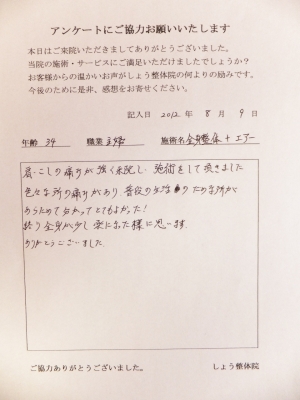 アンケートにご協力お願いいたします
本日はご来院いただきましてありがとうございました。
当院の施術・サービスにご満足いただけましたでしょうか？
お客様からの温かいお声がしょう整体院の何よりの励みです。
今後のために是非、感想をお寄せください。
記入日 2012 年 8 月 9 日
年齢 34 職業 主婦 施術名 全身整体 + エアー
肩・こしの痛みが強く来院し、施術をして頂きました
色々な所の痛みがあり、普段の生活の ダメな所が
あらためて分かってとてもよかった!
終り全身が少し楽になった様に思います。
ありがとうございました。
ご協力ありがとうございました。 しょう整体院